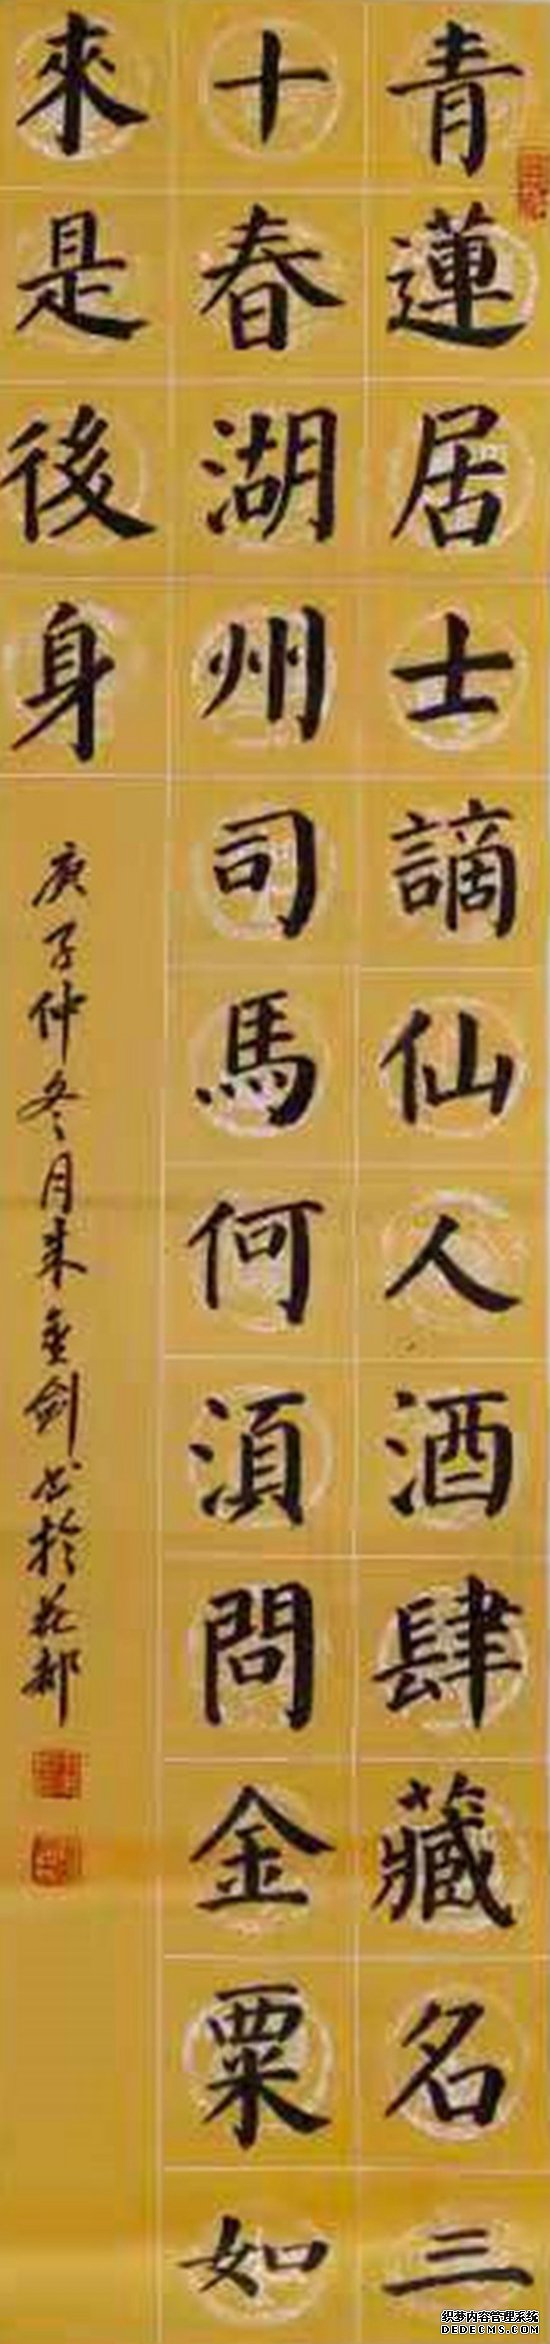 青蓮居士謫仙人酒肆藏名三
十春湖州司馬何湏問金粟如
來是後身
庚子仲冬月剑书於花都
织梦内容管理系统
DEDECMS.COM